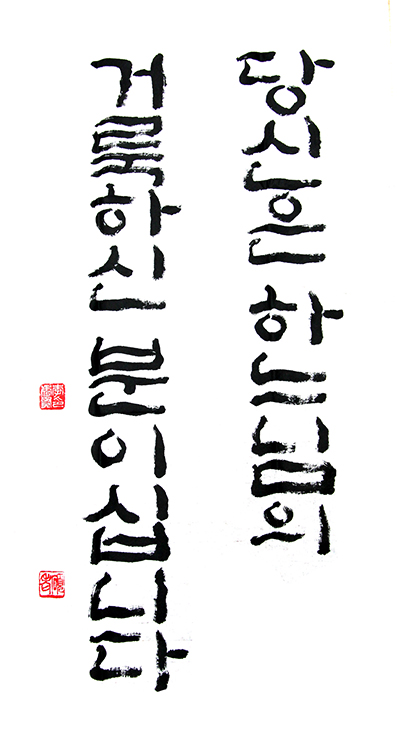 당신은 하느님의
거룩하신 분이십니다